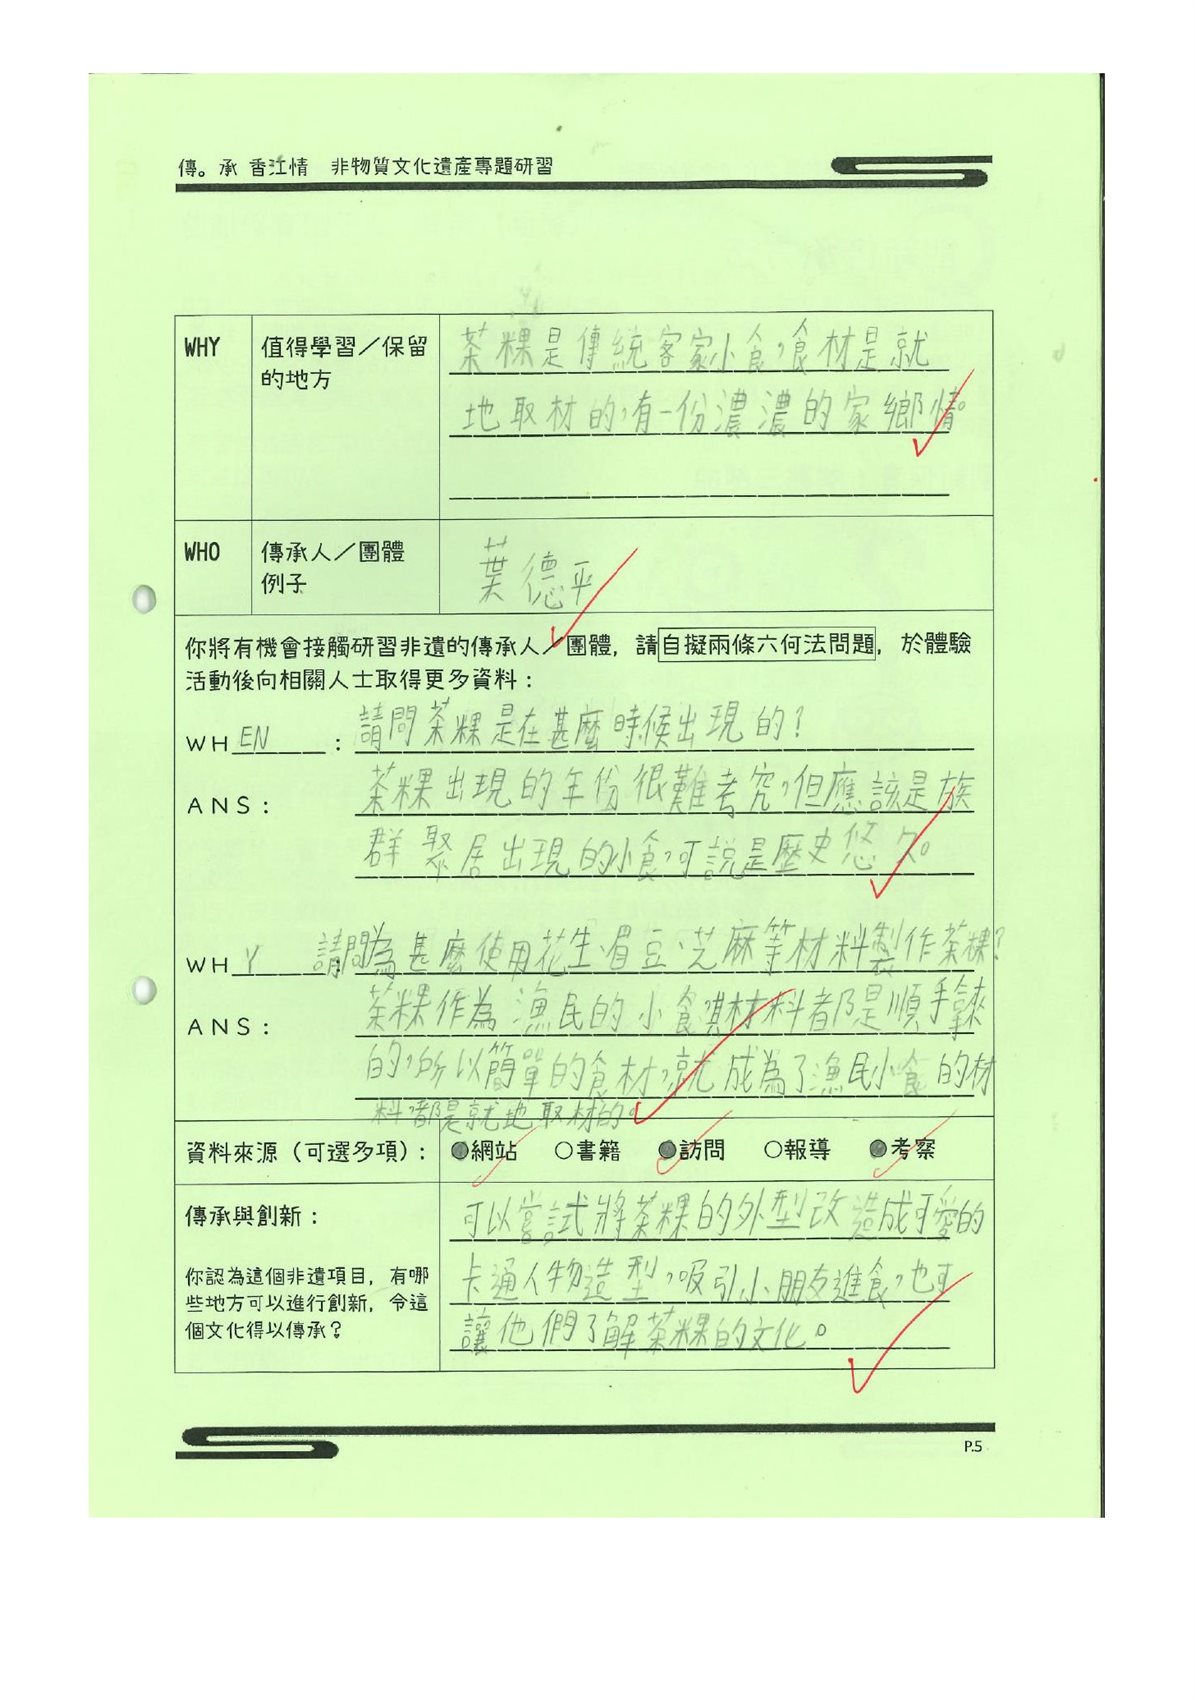 傳。承 香江情　非物質文化遺產專題研習
WHY
值得學習／保留
的地方
茶粿是傳統客家小食，食材是就
地取材的，有一份濃濃的家鄉情。
WHO
傳承人／團體
例子
葉德平
你將有機會接觸研習非遺的傳承人／團體，請自擬兩條六何法問題，於體驗
活動後向相關人士取得更多資料：
WH EN ：請問茶粿是在甚麼時候出現的？
ANS：茶粿出現的年份很難考究，但應該是族
群聚居出現的小食，可說是歷史悠久。
WH Y 請問為甚麼使用花生、眉豆、芝麻等材料製作茶粿？
ANS：茶粿作為漁民的小食，其材料都是順手拿來
的，所以簡單的食材，就成為了漁民小食的材
料，都是就地取材的。
資料來源（可選多項）：●網站 ○書籍 ●訪問 ○報導 ●考察
傳承與創新：
你認為這個非遺項目，有哪
些地方可以進行創新，令這
個文化得以傳承？
可以嘗試將茶粿的外型改造成可愛的
卡通人物造型，吸引小朋友進食，也可
讓他們了解茶粿的文化。
P.5